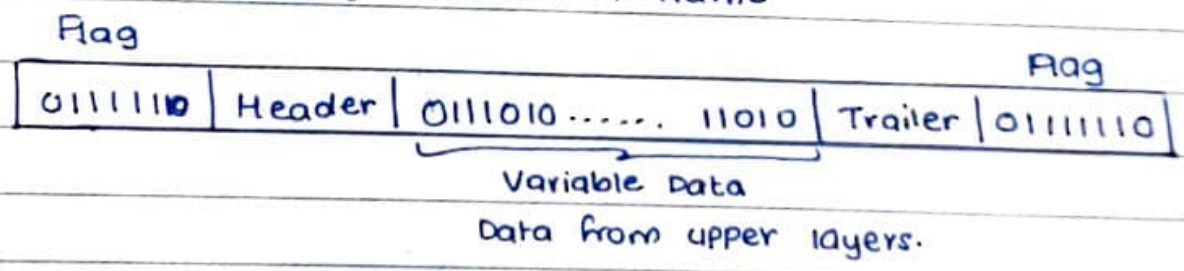 Flag
Flag
01111110 | Header | 0111010...... 11010 | Trailer | 01111110
Variable Data
Data from upper layers.